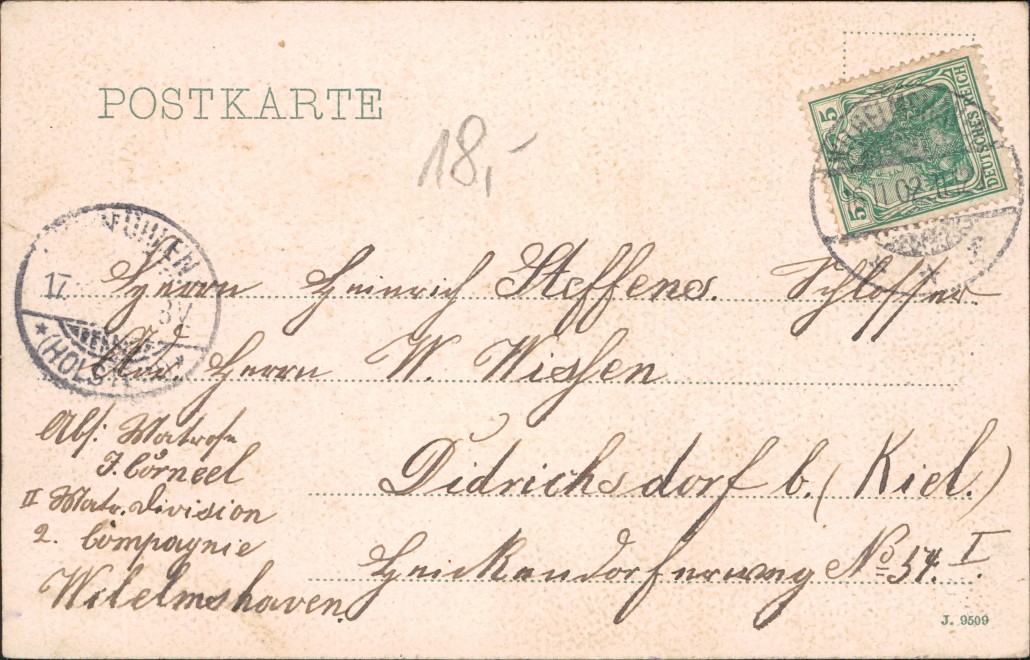 POSTKARTE
18,-
5 DEUTSCHES REICH 5
11.02.
ÜHLEN
17.
(HOLST
Herrn Heinrich Steffens. Schlosser
Adr. Herrn W. Wissen
Didrichsdorf b. (Kiel.)
Heickendorferweg No 54. I.
Abs: Matrose
J. Corneel
II Matr. Division
2. Compagnie
Wilelmshaven
J. 9509